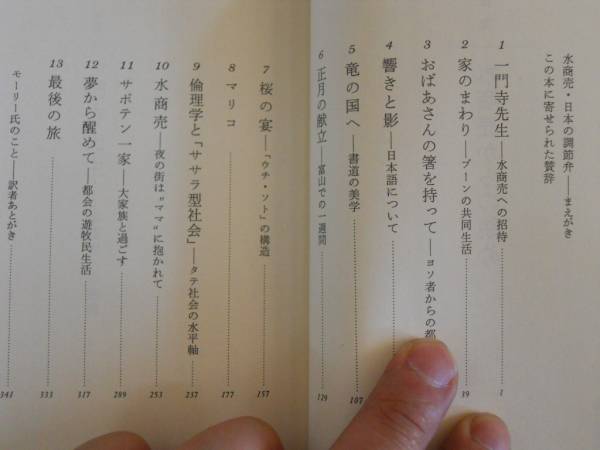 水商売・日本の調節弁——まえがき
この本に寄せられた賛辞
1 一門寺先生——水商売への招待 1
2 家のまわり——ブーンの共同生活 39
3 おばあさんの箸を持って——ヨソ者からの都
4 響きと影——日本語について
5 竜の国へ——書道の美学 107
6 正月の献立——富山での一週間 129
7 桜の宴——「ウチ・ソト」の構造 157
8 マリコ 177
9 倫理学と「ササラ型社会」——タテ社会の水平軸 237
10 水商売——夜の街は〝ママ〟に抱かれて 253
11 サボテン一家——大家族と過ごす 289
12 夢から醒めて——都会の遊牧民生活 317
13 最後の旅 333
モーリー氏のこと——訳者あとがき 341